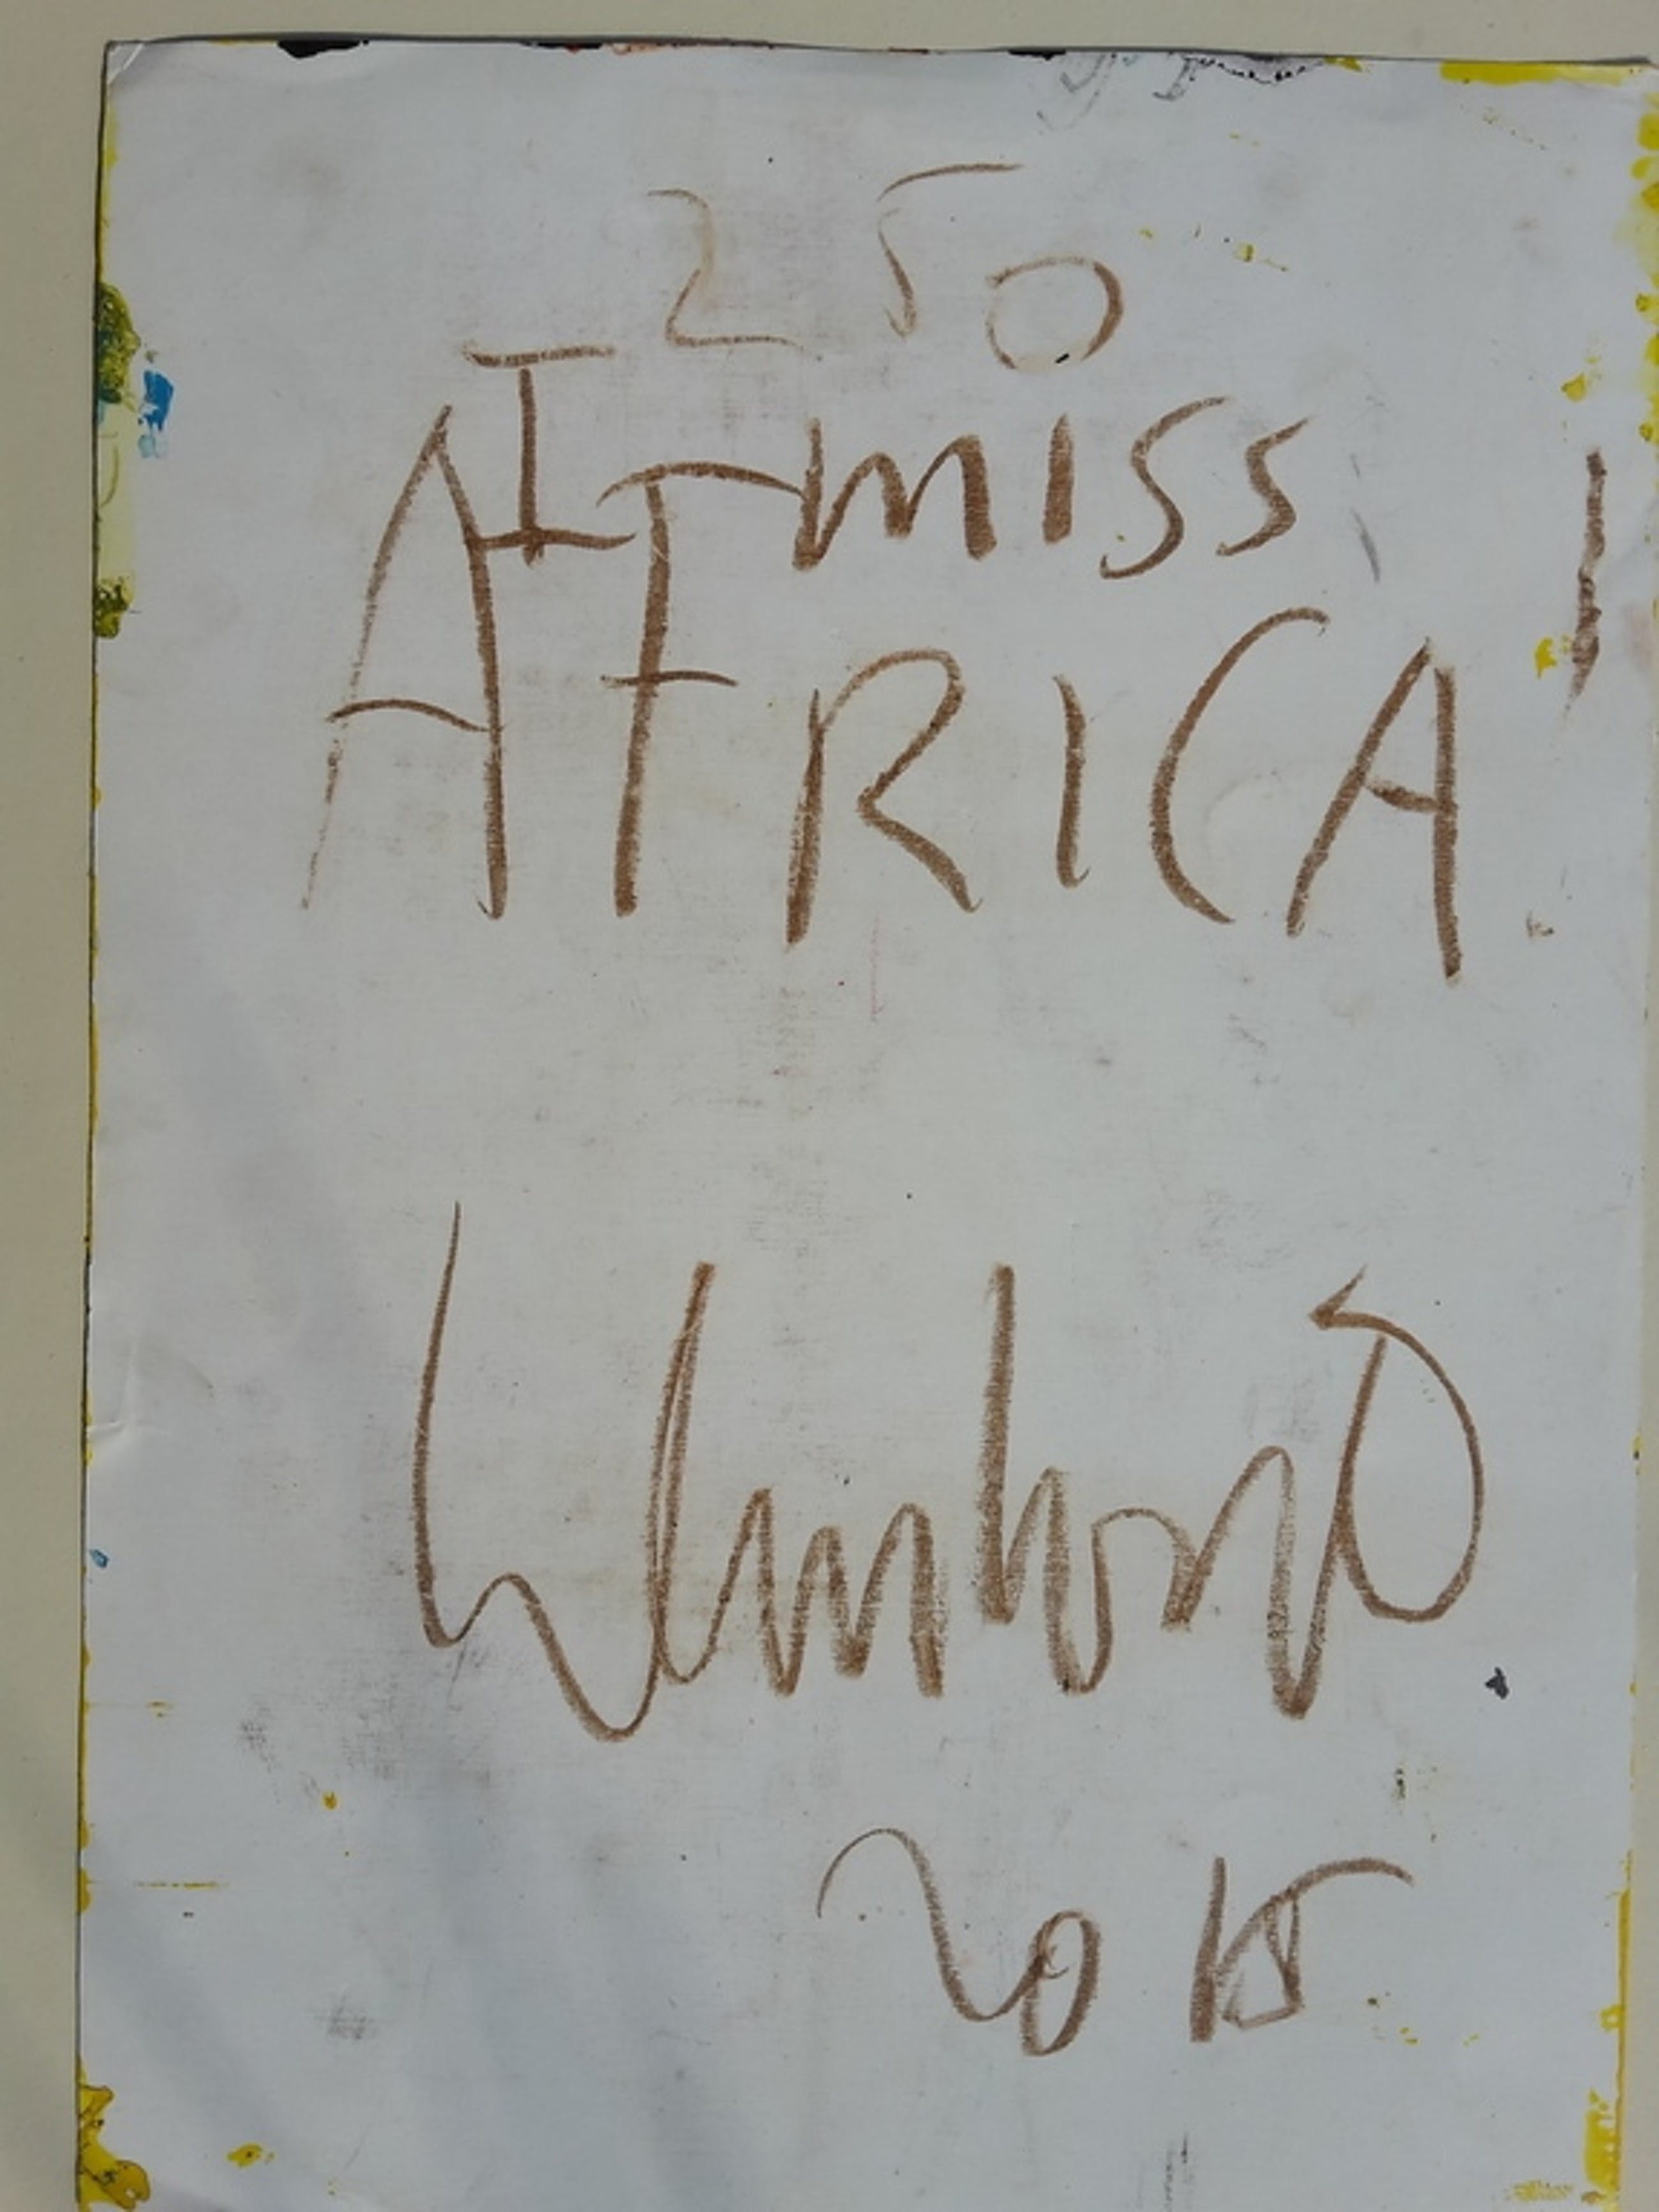 250
I miss
AFRICA!
2015